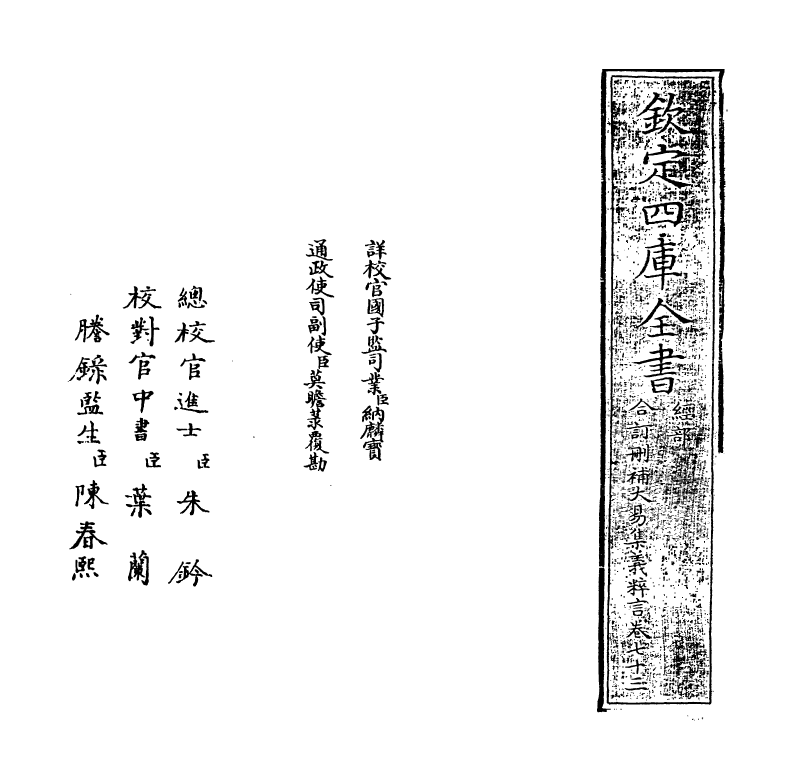 欽定四庫全書
經部
合訂刪補大易集義粹言卷七十三
詳校官國子監司業臣納麟寶
通政使司副使臣莫瞻菉覆勘
總校官進士臣朱鈐
校對官中書臣葉蘭
謄錄監生臣陳春熙